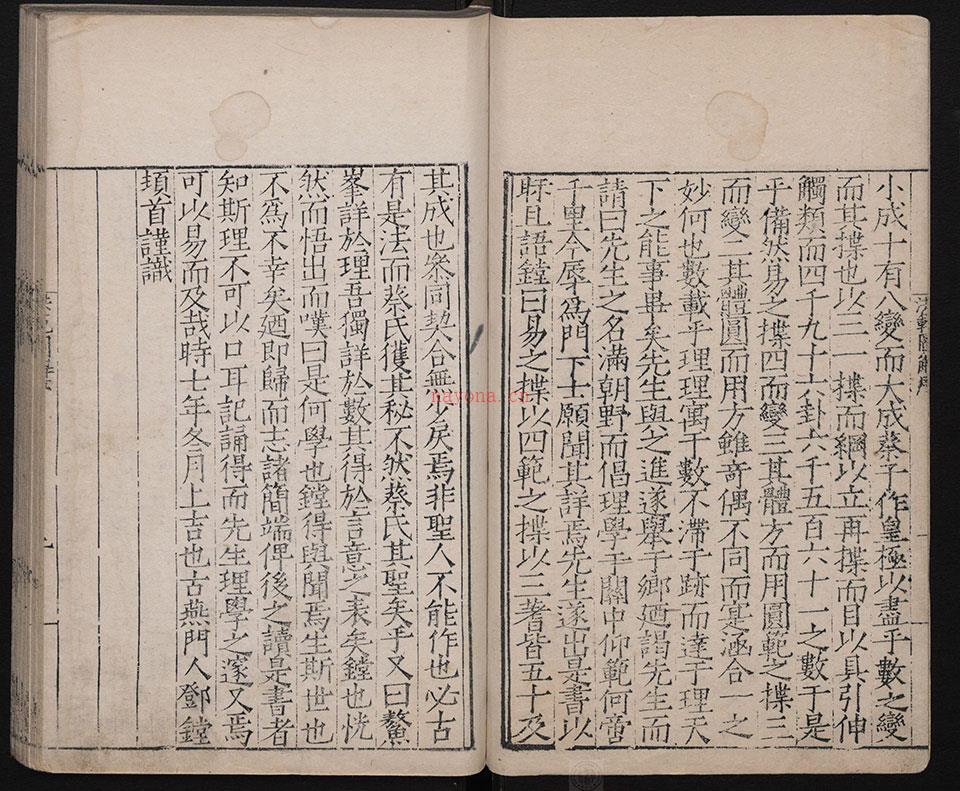 小成十有八變而大成蔡子作皇極以盡乎數之變
而其揲也以三一揲而綱以立再揲而目以具引伸
觸類而四千九十六卦六千五百六十一之數于是
乎備然易之揲四而變三其體方而用圓範之揲三
而變二其體圓而用方雖奇偶不同而寔涵合一之
妙何也數載乎理理寓于數不滯于跡而達于理天
下之能事畢矣先生與之進遂舉于鄉廼謁先生而
請曰先生之名滿朝野而倡理學于關中仰範何啻
千里今辱為門下士願聞其詳焉先生遂出是書以
眎且語鏜曰易之揲以四範之揲以三蓍皆五十及
其成也衆同契合無少戾焉非聖人不能作也必古
有是法而蔡氏獲其秘不然蔡氏其聖矣乎又曰鰲
峯詳於理吾獨詳於數其得於言意之表矣鏜也恍
然而悟出而嘆曰是何學也鏜得與聞焉生斯世也
不為不幸矣廼即歸而志諸簡端俾後之讀是書者
知斯理不可以口耳記誦得而先生理學之邃又焉
可以易而及哉時七年冬月上吉也古燕門人鄧鏜
頊首謹識
nayona.cn